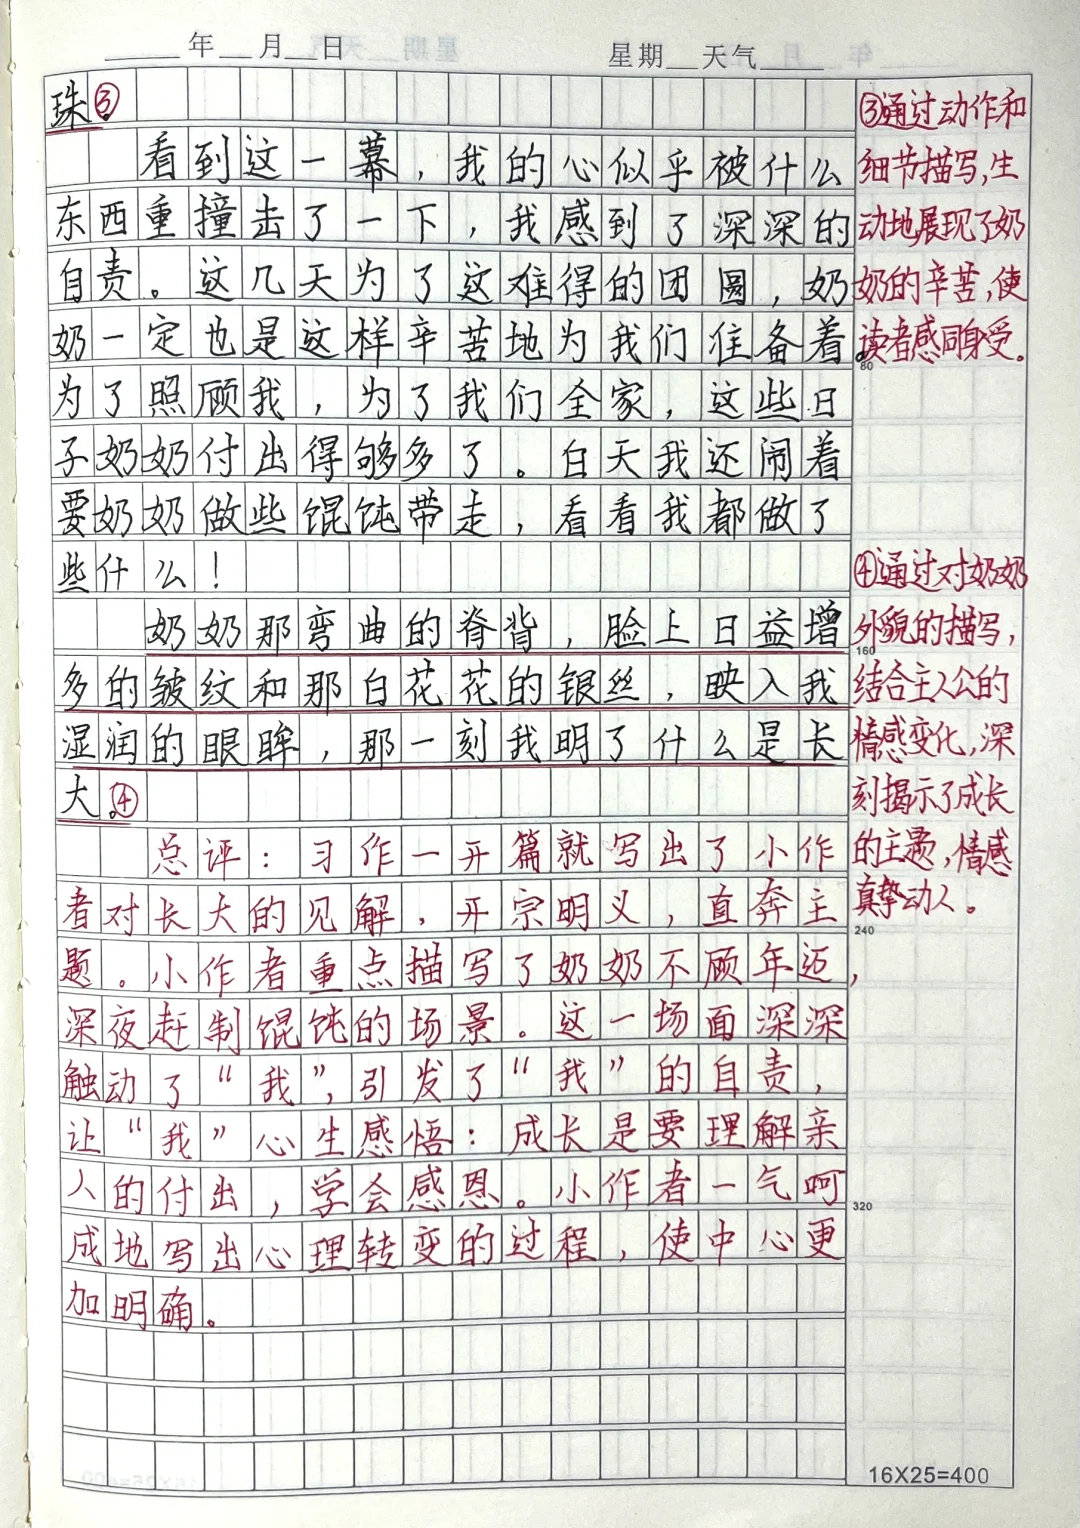 ____年__月__日 星期__天气____
珠③。
看到这一幕，我的心似乎被什么
东西重撞击了一下，我感到了深深的
自责。这几天为了这难得的团圆，奶
奶一定也是这样辛苦地为我们准备着。
为了照顾我，为了我们全家，这些日
子奶奶付出得够多了。白天我还闹着
要奶奶做些馄饨带走，看看我都做了
些什么！
奶奶那弯曲的脊背，脸上日益增
多的皱纹和那白花花的银丝，映入我
湿润的眼眸，那一刻我明了什么是长
大。④
总评：习作一开篇就写出了小作
者对长大的见解，开宗明义，直奔主
题。小作者重点描写了奶奶不顾年迈，
深夜赶制馄饨的场景。这一场面深深
触动了“我”，引发了“我”的自责，
让“我”心生感悟：成长是要理解亲
人的付出，学会感恩。小作者一气呵
成地写出心理转变的过程，使中心更
加明确。
③通过动作和
细节描写，生
动地展现了奶
奶的辛苦，使
读者感同身受。
80
④通过对奶奶
外貌的描写，
160
结合主人公的
情感变化，深
刻揭示了成长
的主题，情感
真挚动人。
240
320
16X25=400